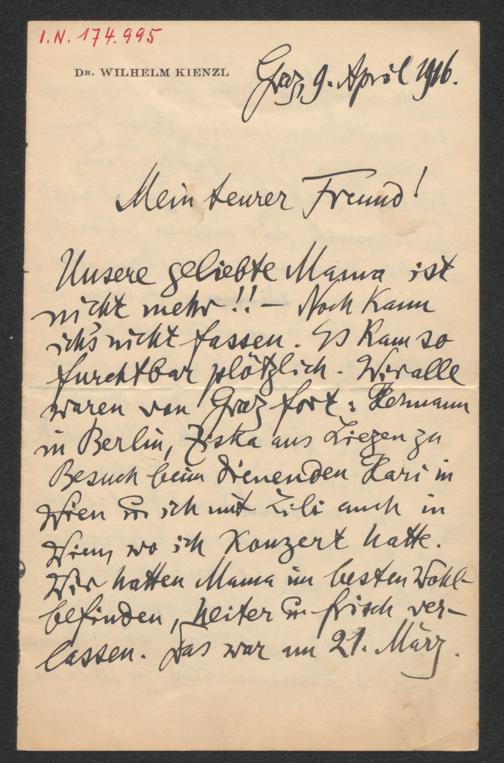 I.N. 174.995
DR. WILHELM KIENZL
Graz, 9. April 1916.
Mein teurer Freund!
Unsere geliebte Mama ist
nicht mehr!! — Noch kann
ich's nicht fassen. Es kam so
furchtbar plötzlich. Wir alle
waren von Graz fort: Hermann
in Berlin, Ziska aus Liezen zu
Besuch beim dienenden Hari in
Wien u. ich mit Lili auch in
Wien, wo ich Konzert hatte.
Wir hatten Mama im besten Wohl-
befinden, heiter u. frisch ver-
lassen. Das war am 21. März.